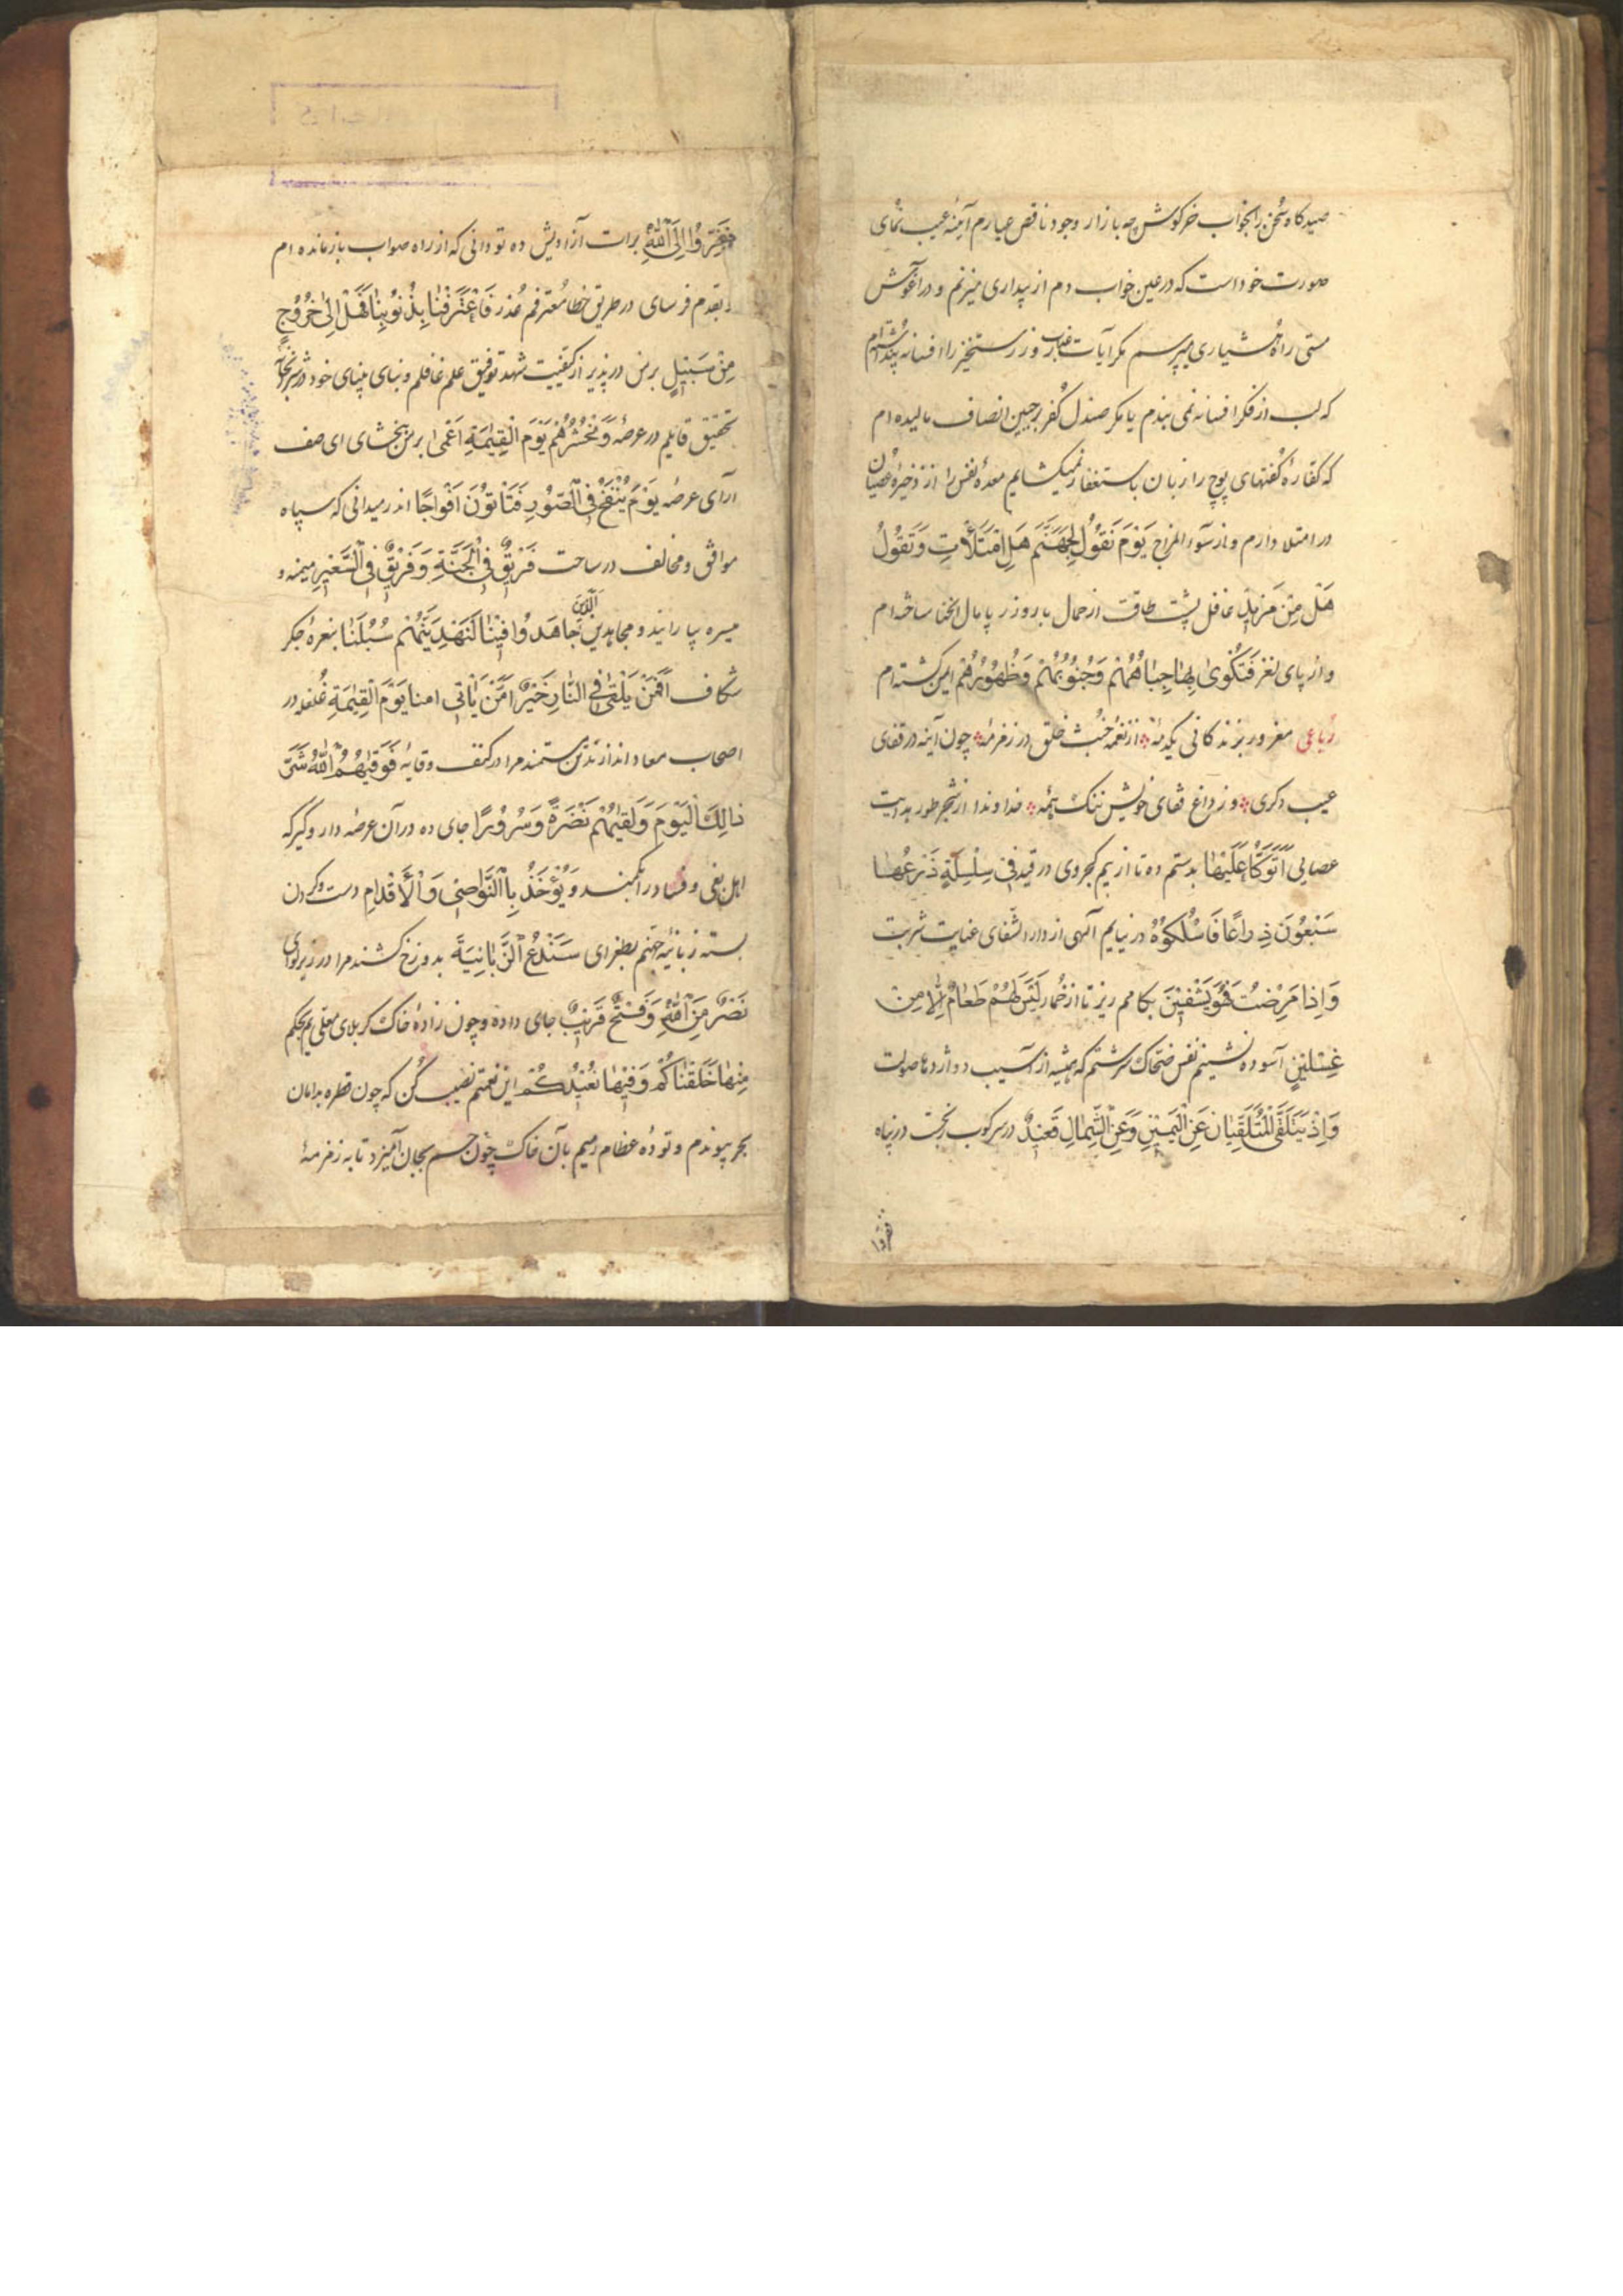 صید کاه سُخن را بخواب خرکوش چه بازار وجود ناقص عیارم آینهٔ عیب نمای
صورت خود است که در عین خواب دم از بیداری میزنم و در آغوش
مستی راه هُشیاری میپرسم مکر آیات عذاب روز رستخیز را افسانه پنداشته‌ام
که لب از فکر افسانه نمی بندم یا مکر صندل کُفر بر جبین انصاف مالیده ام
که کفّارهٔ کُفتهای پوچ را زبان باستغفار نمیکشایم معدهٔ نفس را از ذخیرهٔ عصیان
در امتلا دارم و از سَوء المزاج یَوْمَ نَقُولُ لِجَهَنَّمَ هَلِ امْتَلَأْتِ وَتَقُولُ
هَلْ مِنْ مَزِیدٍ غافل پشت طاقت از حمال بار وزر پامال انحنا ساخته ام
و از پای لغز فَتُکْوٰی بِهٰا جِبٰاهُهُمْ وَجُنُوبُهُمْ وَظُهُورُهُمْ ایمن کشته ام
رُباعی مغرور بزندکانی یکدمهٔ از نغمهٔ خبث خلق در زمزمهٔ چون آینه در قفای
عیب دکری وز داغ قفای خویش ننک همهٔ خداوندا از شجر طور هدایت
عصایی اَتَوَکَّؤُا عَلَیْهٰا بدستم ده تا از بیم کجروی در قید فِی سِلْسِلَةٍ ذَرْعُهٰا
سَبْعُونَ ذِرٰاعًا فَاسْلُکُوهُ در نیایم آلهی از دار الشّفای عنایت شربت
وَاِذٰا مَرِضْتُ فَهُوَ یَشْفِینِ بکامم ریز تا از خُمار لَیْسَ لَهُمْ طَعٰامٌ اِلّٰا مِنْ
غِسْلِینٍ آسوده نشینم نفس ضحاک سرشتم که همیشه از آسیب دو اژدها صولت
وَاِذْ یَتَلَقَّی الْمُتَلَقِّیٰانِ عَنِ الْیَمِینِ وَعَنِ الشِّمٰالِ قَعِیدٌ در سرکوب رنجست در پناه
فَفِرُّوا
فَفِرُّوا اِلَی اللّٰهِ برات آزادیش ده تو دانی که از راه صواب بازمانده ام
و بقدم فرسای در طریق خطا مُعترفم عُذر فَاعْتَرَفْنٰا بِذُنُوبِنٰا فَهَلْ اِلٰی خُرُوجٍ
مِنْ سَبِیلٍ بر من در پذیر از کیفیت شهد توفیق علم غافلم و بنای بینای خود در
تحقیق قایلم در عرصهٔ وَنَحْشُرُهُمْ یَوْمَ الْقِیٰمَةِ اَعْمٰی بر من ببخشای ای صف
آرای عرصه یَوْمَ یُنْفَخُ فِی الصُّورِ فَتَأْتُونَ اَفْوٰاجًا اندر میدانی که سپاه
موافق و مخالف در ساحت فَرِیقٌ فِی الْجَنَّةِ وَفَرِیقٌ فِی السَّعِیرِ میمنه و
میسره بیارایند و مجاهدین اَلَّذِینَ جٰاهَدُوا فِینٰا لَنَهْدِیَنَّهُمْ سُبُلَنٰا بنعرهٔ جکر
شکاف اَفَمَنْ یُلْقٰی فِی النّٰارِ خَیْرٌ اَمْ مَنْ یَأْتِی امنا یَوْمَ الْقِیٰمَةِ غُلغله در
اصحاب معاد اندازند من مستمند مرا در کنف وقایهٔ فَوَقٰیهُمُ اللّٰهُ شَرَّ
ذٰلِکَ الْیَوْمِ وَلَقّٰیهُمْ نَضْرَةً وَسُرُورًا جای ده در آن عرصهٔ دار وکیر که
اهل بغی و فساد را کمند وَیُؤْخَذُ بِالنَّوٰاصِی وَالْأَقْدٰامِ دست و کردن
بسته زبانیهٔ جهنم بطغرای سَنَدْعُ الزَّبٰانِیَةَ بدوزخ کشند مرا در زیر لوای
نَصْرٌ مِنَ اللّٰهِ وَفَتْحٌ قَرِیبٌ جای داده و چون زادهٔ خاک کربلای معلّی ام بحکم
مِنْهٰا خَلَقْنٰاکُمْ وَفِیهٰا نُعِیدُکُمْ این نعمتم نصیب کُن که چون قطره بدامان
بحر پیوندم و تودهٔ عظام رمیم بآن خاک چون جسم بجان آمیزد تا به زمزمهٔ